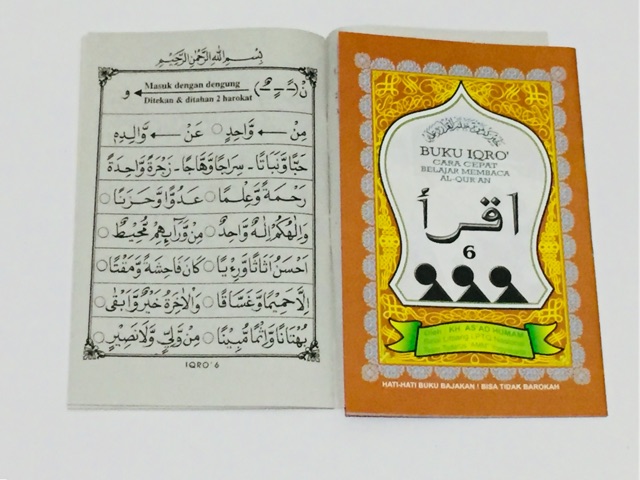 بِسْمِ اللهِ الرَّحْمٰنِ الرَّحِيْمِ
نْ (ــًــٍــٌ) Masuk dengan dengung و
Ditekan & ditahan 2 harokat
مِنْ ← وَّاحِدٍ ○ عَنْ ← وَّالِدِهٖ
حَبًّا وَّنَبَاتًا - سِرَاجًا وَّهَّاجًا - زَجْرَةٌ وَّاحِدَةٌ
رَحْمَةً وَّعِلْمًا ○ عَدُوًّا وَّحَزَنًا ○
وَاِلٰهُكُمْ اِلٰهٌ وَّاحِدٌ ○ مِنْ وَّرَآئِهِمْ مُّحِيْطٌ ○
اَحْسَنُ اَثَاثًا وَّرِءْيًا ○ كَانَ فَاحِشَةً وَّمَقْتًا ○
اِلَّا حَمِيْمًا وَّغَسَّاقًا ○ وَالْاٰخِرَةُ خَيْرٌ وَّاَبْقٰى ○
بُهْتَانًا وَّاِثْمًا مُّبِيْنًا ○ مِنْ وَّلِيٍّ وَّلَا نَصِيْرٍ ○
IQRO' 6
BUKU IQRO'
CARA CEPAT
BELAJAR MEMBACA
AL-QUR'AN
اقرأ
6
KH. AS'AD HUMAM
HATI-HATI BUKU BAJAKAN ! BISA TIDAK BAROKAH